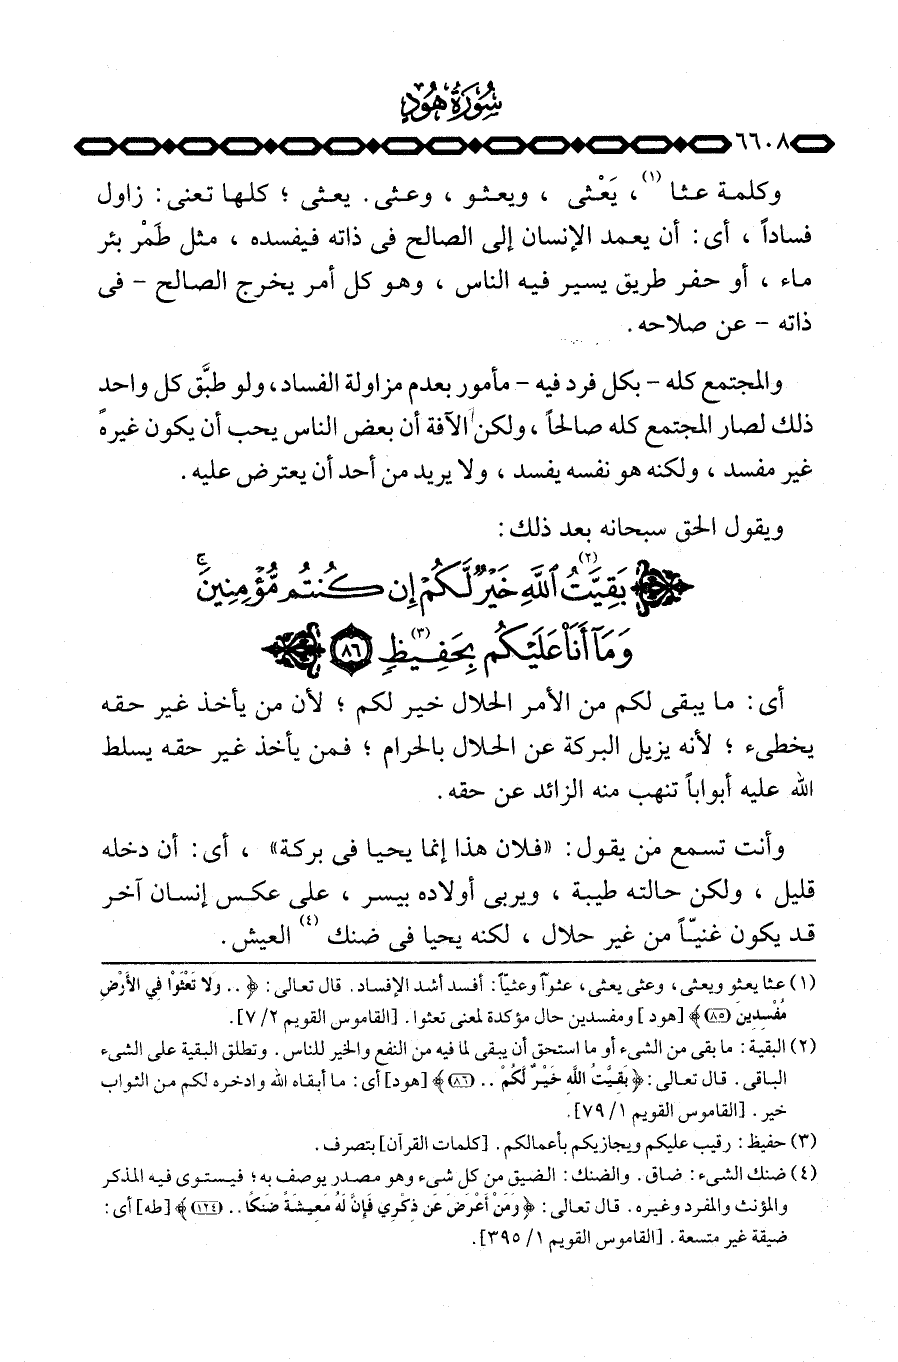 سُورَةُ هُودٍ
٦٦٠٨
وكلمة عثا (١)، يَعْثى ، ويعثو ، وعثى. يعثى ؛ كلها تعنى: زاول
فساداً ، أى: أن يعمد الإنسان إلى الصالح فى ذاته فيفسده ، مثل طَمْر بئر
ماء ، أو حفر طريق يسير فيه الناس ، وهو كل أمر يخرج الصالح - فى
ذاته - عن صلاحه.
والمجتمع كله - بكل فرد فيه - مأمور بعدم مزاولة الفساد، ولو طبَّق كل واحد
ذلك لصار المجتمع كله صالحاً ، ولكن الآفة أن بعض الناس يحب أن يكون غيره
غير مفسد ، ولكنه هو نفسه يفسد ، ولا يريد من أحد أن يعترض عليه .
ويقول الحق سبحانه بعد ذلك :
بَقِيَّتُ (٢) ٱللَّهِ خَيْرٌ لَّكُمْ إِن كُنتُم مُّؤْمِنِينَ ۚ
وَمَآ أَنَا۠ عَلَيْكُم (٣) بِحَفِيظٍ ٨٦
أى : ما يبقى لكم من الأمر الحلال خير لكم ؛ لأن من يأخذ غير حقه
يخطىء ؛ لأنه يزيل البركة عن الحلال بالحرام ؛ فمن يأخذ غير حقه يسلط
الله عليه أبواباً تنهب منه الزائد عن حقه .
وأنت تسمع مَن يقول : «فلان هذا إنما يحيا فى بركة» ، أى : أن دخله
قليل ، ولكن حالته طيبة ، ويربى أولاده بيسر ، على عكس إنسان آخر
قد يكون غنيّاً من غير حلال ، لكنه يحيا فى ضنك (٤) العيش .
(١) عثا يعثو ويعثى، وعثى يعثى، عثواً وعثياً: أفسد أشد الإفساد. قال تعالى: ﴿ .. وَلا تَعْثَوْا فِي الأَرْضِ
مُفْسِدِينَ (٨٥)﴾ [هود] ومفسدين حال مؤكدة لمعنى تعثوا . [القاموس القويم ٢/ ٧].
(٢) البقية : ما بقى من الشىء أو ما استحق أن يبقى لما فيه من النفع والخير للناس . وتطلق البقية على الشىء
الباقى . قال تعالى : ﴿بَقِيَّتُ اللَّهِ خَيْرٌ لَّكُمْ .. (٨٦)﴾ [هود] أى : ما أبقاه الله وادخره لكم من الثواب
خير . [القاموس القويم ١/ ٧٩].
(٣) حفيظ : رقيب عليكم ويجازيكم بأعمالكم . [كلمات القرآن] بتصرف .
(٤) ضنك الشىء : ضاق . والضنك : الضيق من كل شىء وهو مصدر يوصف به؛ فيستوى فيه المذكر
والمؤنث والمفرد وغيره . قال تعالى : ﴿ وَمَنْ أَعْرَضَ عَن ذِكْرِي فَإِنَّ لَهُ مَعِيشَةً ضَنكًا .. (١٢٤)﴾ [طه] أى :
ضيقة غير متسعة . [القاموس القويم ١/ ٣٩٥].